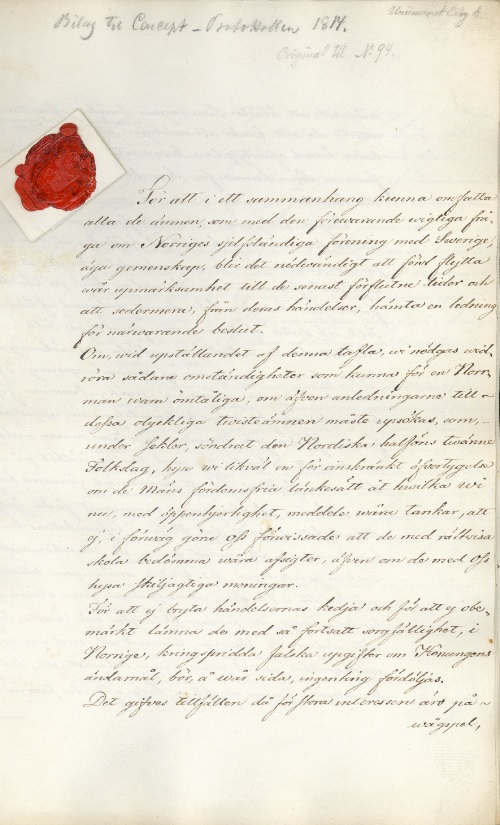 Bilag til Concept-Protokollen 1814.
Original til No 94.
För att i ett sammanhang kunna omfatta
alla de ämnen, som med den förewarande wigtiga frå-
ga om Norriges sjelfständiga förening med Swerige,
äga gemenskap, blir det nödvändigt att först flytta
wår upmärksamhet till de senast förflutne tider och
att sedermera, från deras händelser, hämta en ledning
för närwarande beslut.
Om, wid upställandet af denna tafla, wi nödgas wid-
röra sådana omständigheter som kunna för en Norr-
man wara ömtåliga, om äfven anledningarne till
dessa olyckliga twisteämnen måste upsökas, som,
under sekler, söndrat den Nordiska halföns twänne
Folkslag, hysa wi likväl en för oinskränkt öfvertygelse
om de Mäns fördomsfria tänkesätt åt hwilka wi
nu, med öppenhjertighet, meddele wåra tankar, att
ej, i förwäg göra oss förwissade att de med rättwisa
skola bedömma wåra afsigter, äfven om de med oss
hysa skiljagtiga meningar.
För att ej bryta händelsernas kedja och för att ej obe-
märkt lämna de med så fortsatt sorgfällighet, i
Norrige, kringspridda falska upgifter om Konungens
ändamål, bör, å wår sida, ingenting fördöljas.
Det gifves tillfällen då för stora interessen äro på
wägspel,